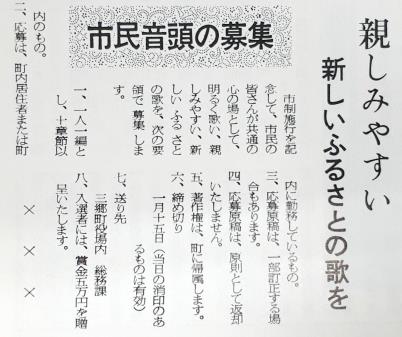 親しみやすい
新しいふるさとの歌を
市民音頭の募集
市制施行を記
念して、市民の
皆さんが共通の
心の場として、
明るく歌い、親
しみやすい、新
しいふるさと
の歌を、次の要
領で募集しま
す。
一、一人一編と
し、十章節以
内のもの。
二、応募は、町内居住者または町
内に勤務しているもの。
三、応募原稿は、一部訂正する場
合もあります。
四、応募原稿は、原則として返却
いたしません。
五、著作権は、町に帰属します。
六、締め切り
一月十五日（当日の消印のあ
るものは有効）
七、送り先
三郷町役場内　総務課
八、入選者には、賞金五万円を贈
呈いたします。
×　×　×